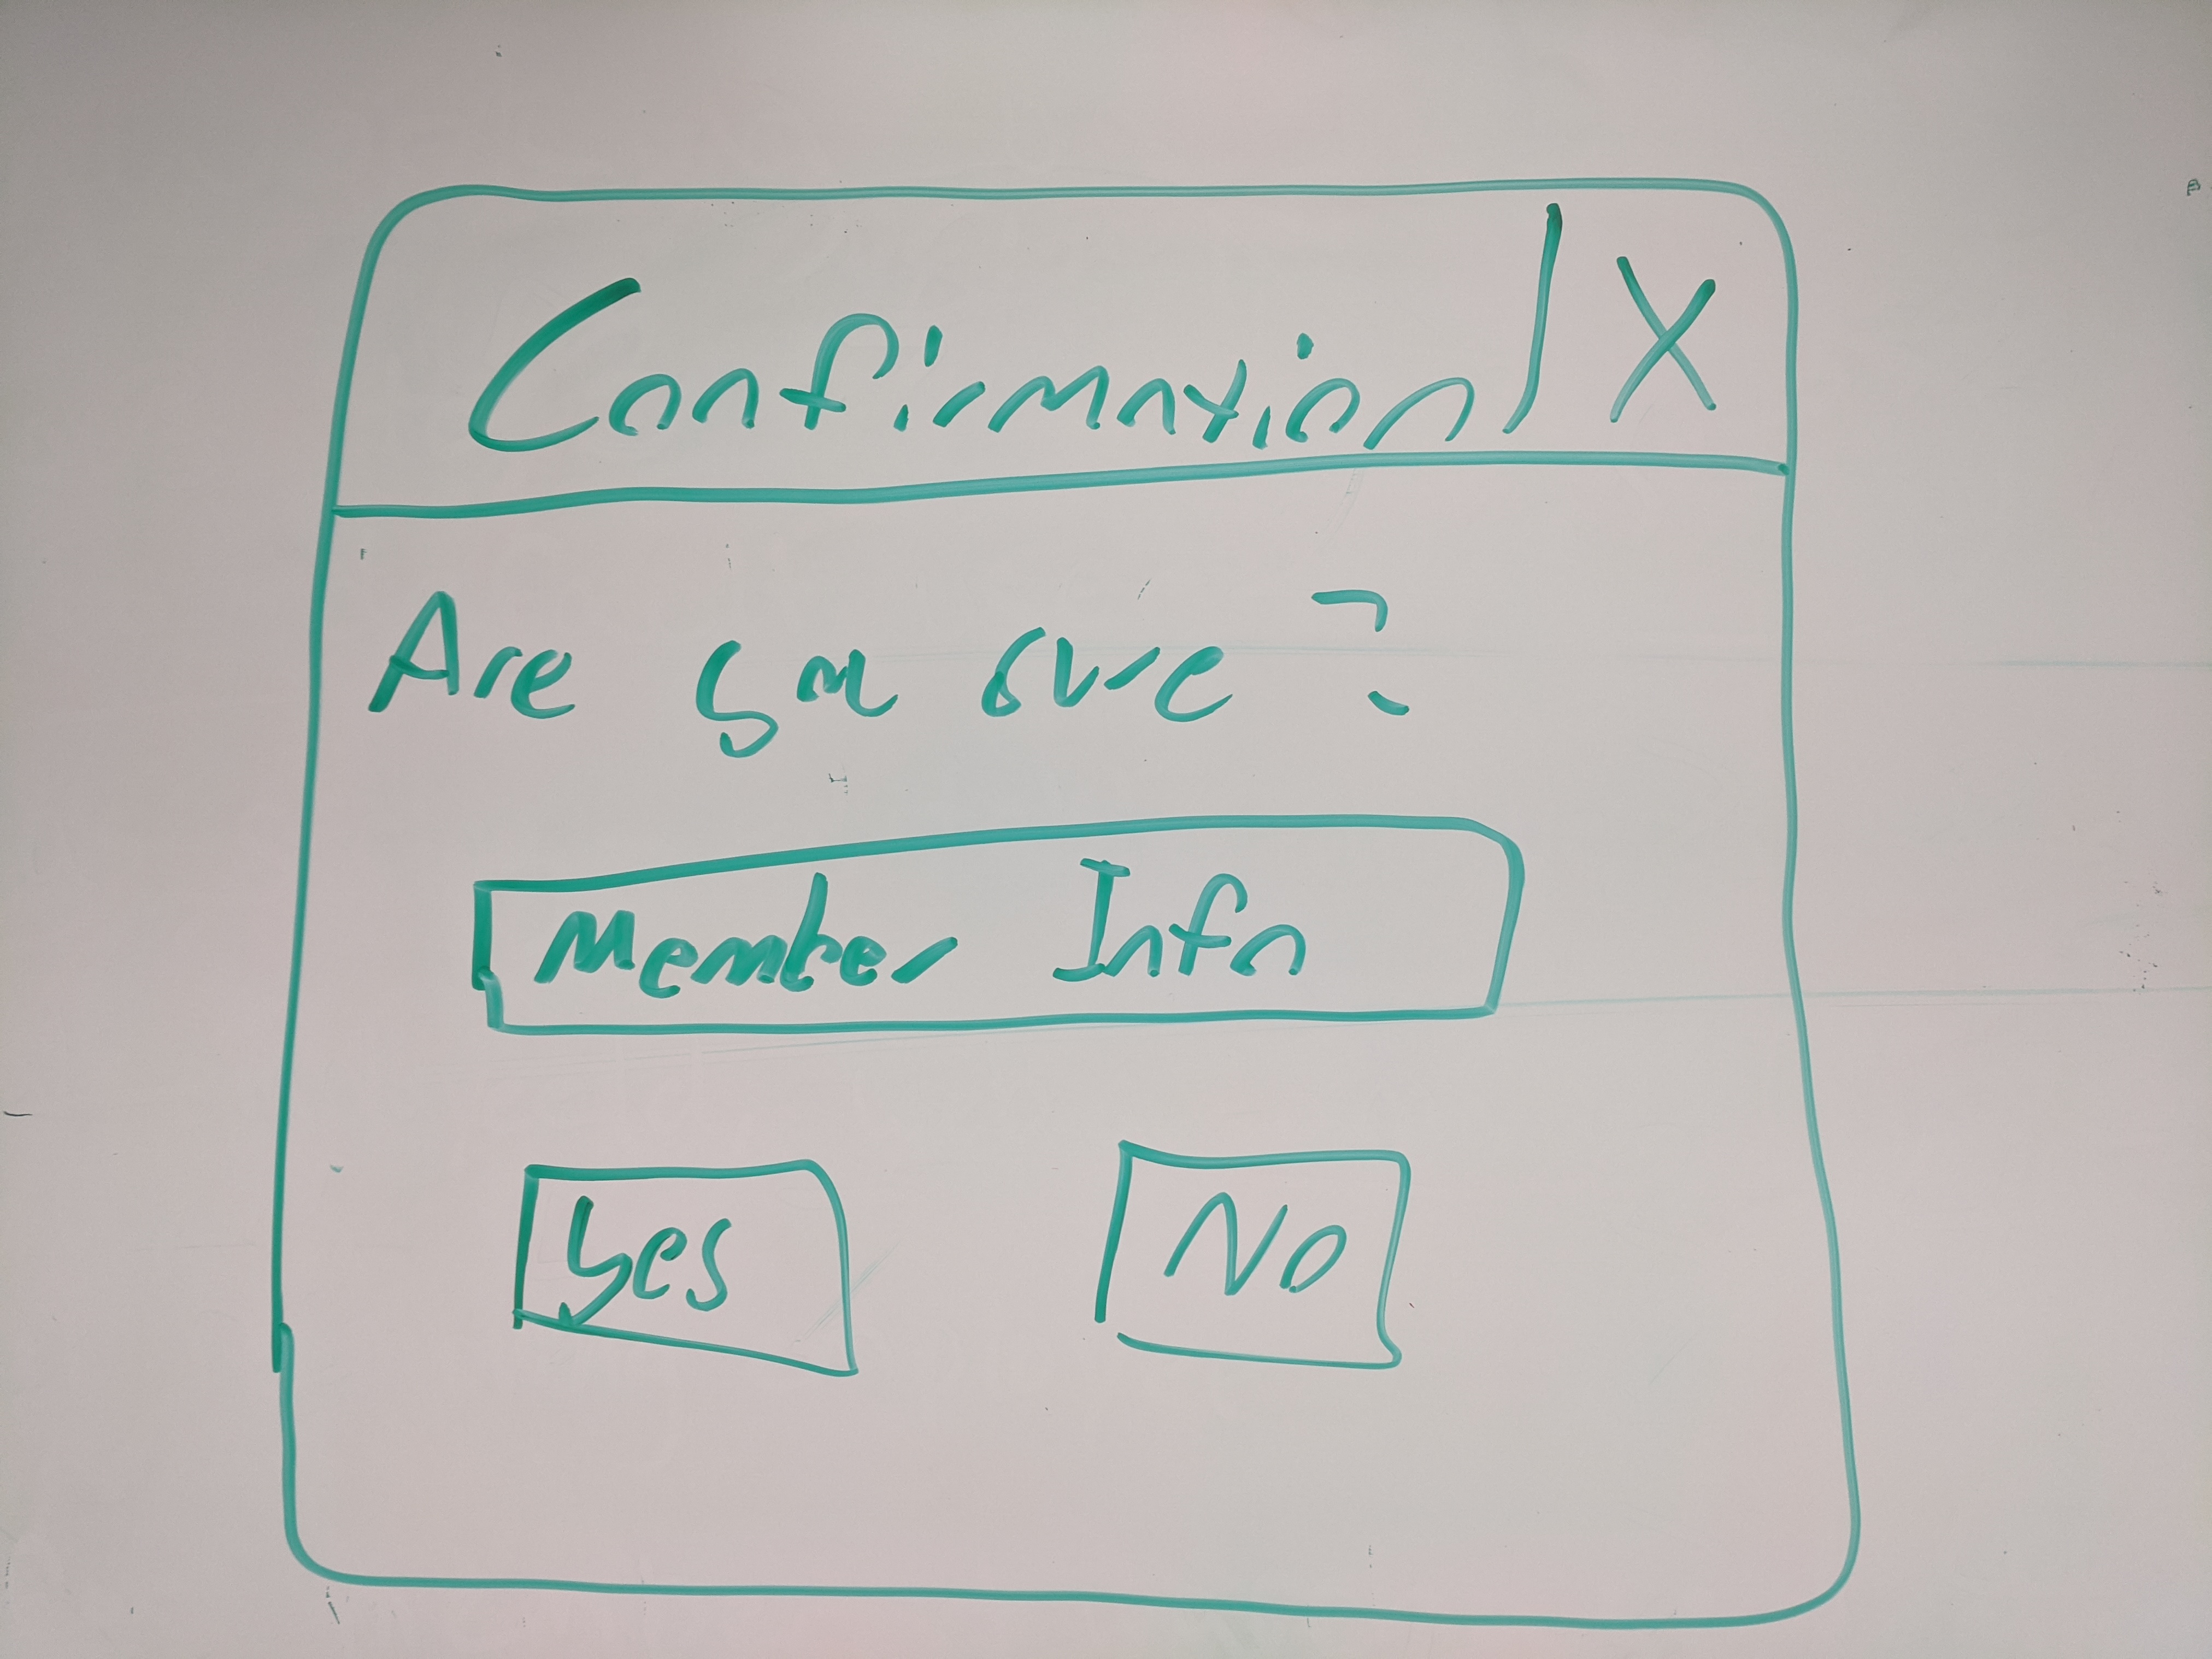 Confirmation X
Are you sure ?
Member Info
Yes No